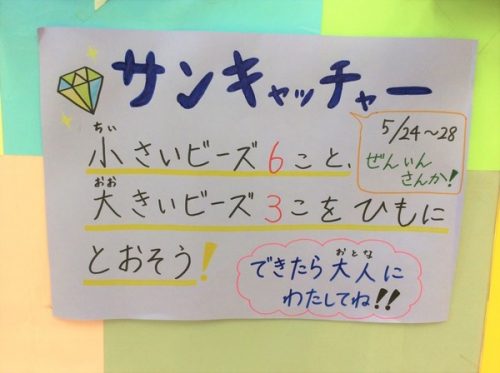 サンキャッチャー
5/24～28
ぜんいん
さんか!
小さいビーズ6こと、
大きいビーズ3こをひもに
とおそう!
できたら大人に
わたしてね!!